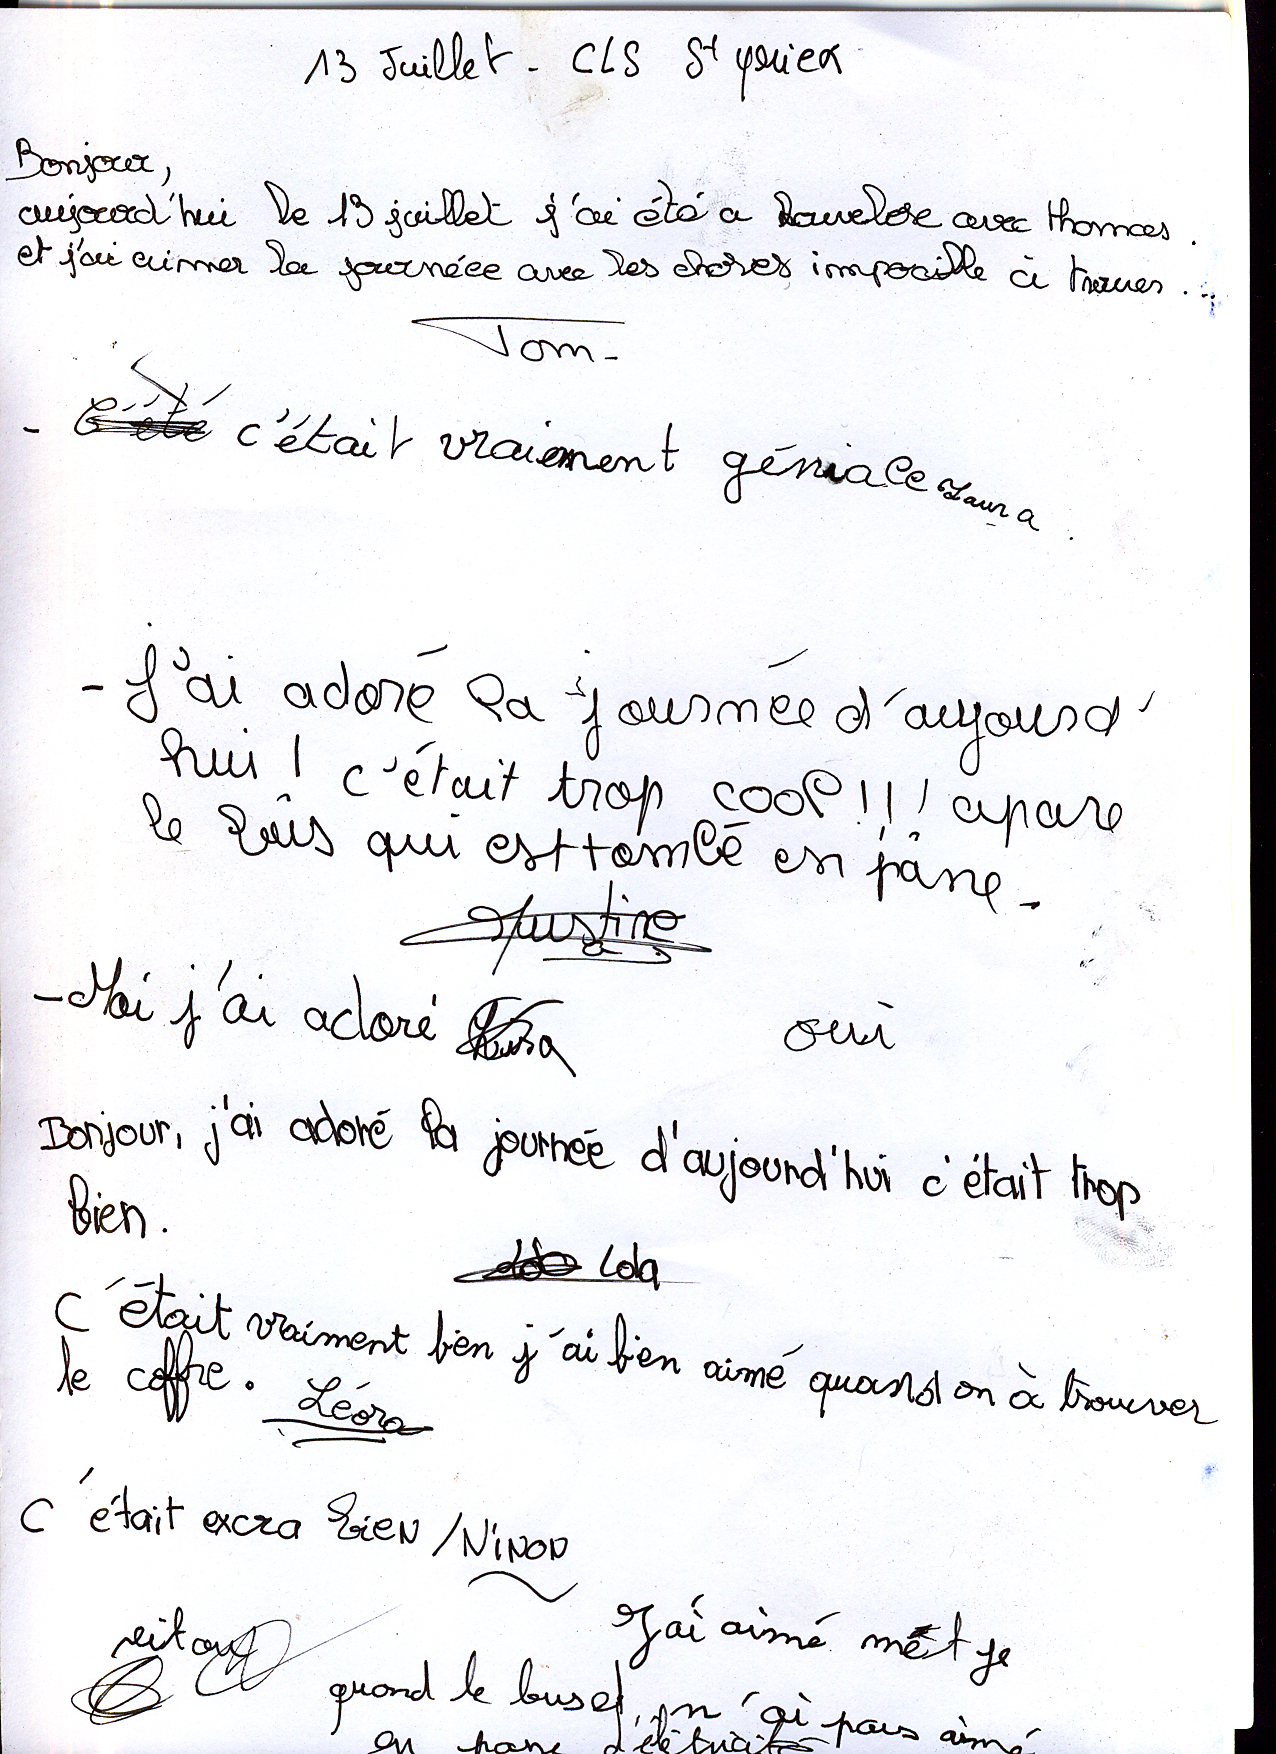 13 Juillet - CLS St yrieix
Bonjour,
aujourd'hui le 13 juillet j'ai été a avec thomas.
et j'ai aimer la journéee avec les choses impocille à truver...
Tom-
- c'était vraiement géniale Laura
- J'ai adoré la journée d'aujourd'
hui ! c'était trop cool !!! apare
le bûs qui est tombé en pâne.
Justine
- Moi j'ai adoré
oui
Bonjour, j'ai adoré la journée d'aujourd'hui c'était trop
bien.
Lola
C'était vraiment bien j'ai bien aimé quand on à trouver
le coffre. Léora
C'était excra bien / Ninon
J'ai aimé met je
quand le bus n'ai pars aimé
en pane